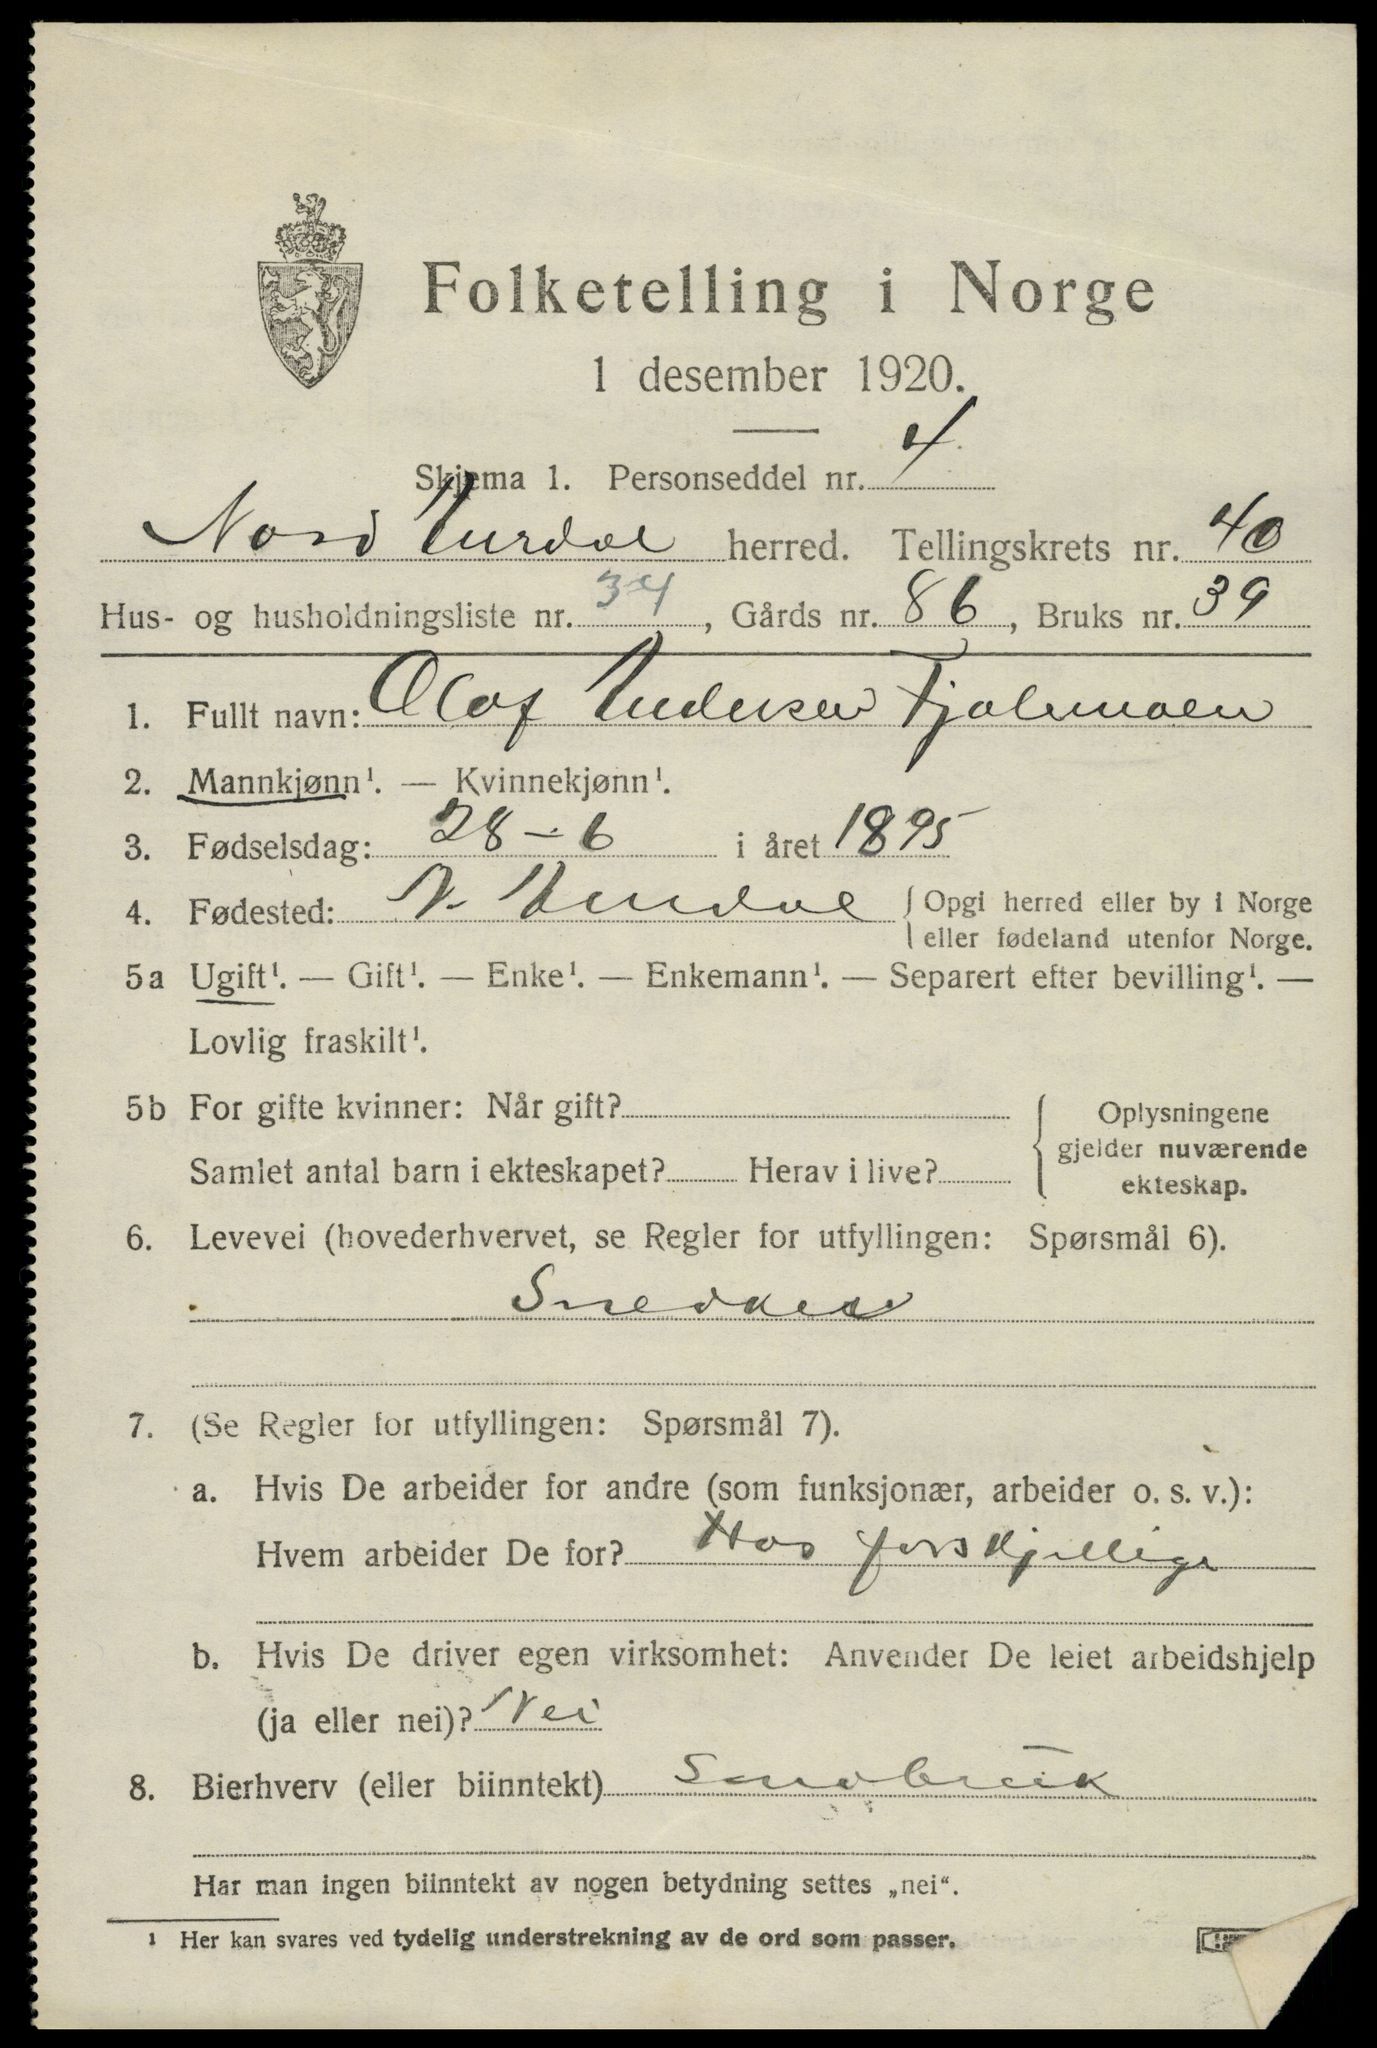 Folketelling i Norge
1 desember 1920.
Skjema 1. Personseddel nr. 4
Nord Aurdal herred. Tellingskrets nr. 40
Hus- og husholdningsliste nr. 34, Gårds nr. 86, Bruks nr. 39
1. Fullt navn: Olaf Andersen
2. Mannkjønn¹. — Kvinnekjønn¹.
3. Fødselsdag: 28-6 i året 1895
4. Fødested: N. Aurdal { Opgi herred eller by i Norge
eller fødeland utenfor Norge.
5a Ugift¹. — Gift¹. — Enke¹. — Enkemann¹. — Separert efter bevilling¹. —
Lovlig fraskilt¹.
5b For gifte kvinner: Når gift?
Samlet antal barn i ekteskapet? Herav i live?
{ Oplysningene
gjelder nuværende
ekteskap.
6. Levevei (hovederhvervet, se Regler for utfyllingen: Spørsmål 6).
Snedker
7. (Se Regler for utfyllingen: Spørsmål 7).
a. Hvis De arbeider for andre (som funksjonær, arbeider o. s. v.):
Hvem arbeider De for? Hos forskjellige
b. Hvis De driver egen virksomhet: Anvender De leiet arbeidshjelp
(ja eller nei)? Nei
8. Bierhverv (eller biinntekt) Smabruk
Har man ingen biinntekt av nogen betydning settes „nei“.
¹ Her kan svares ved tydelig understrekning av de ord som passer.